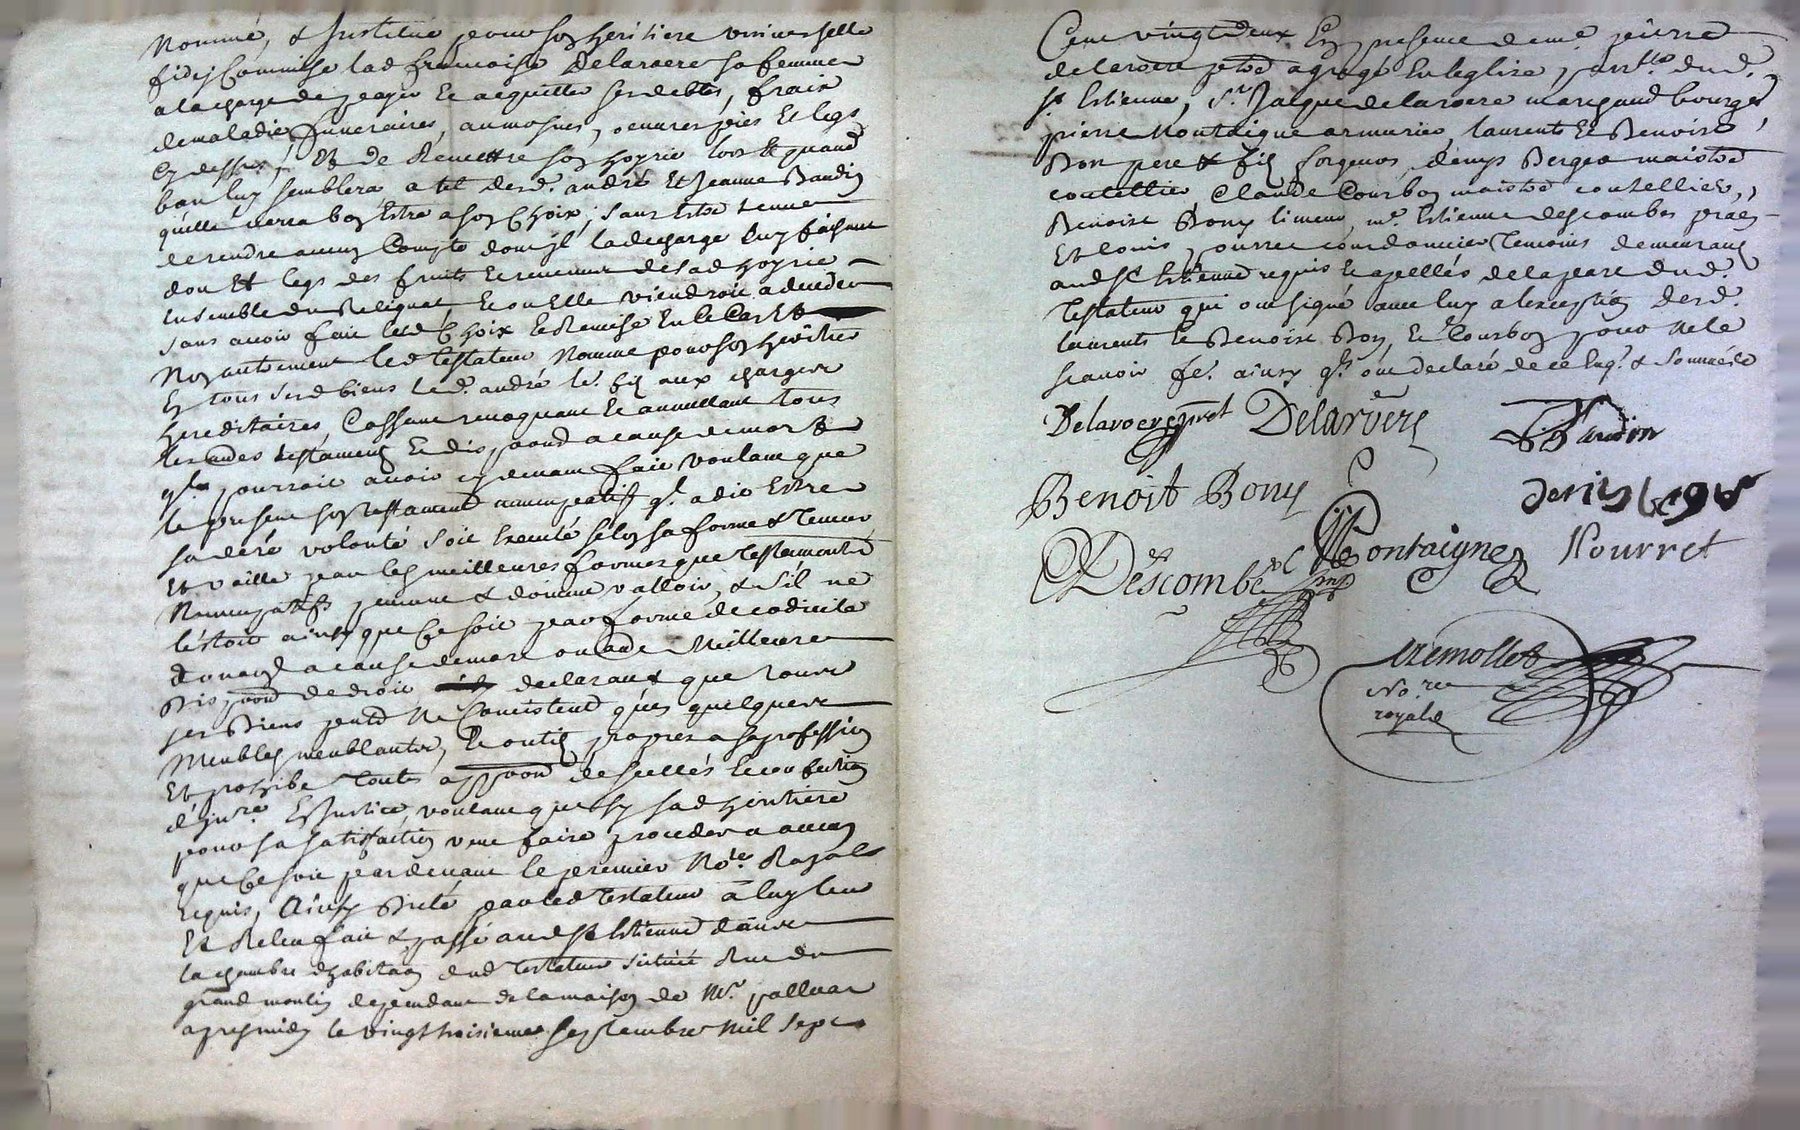 Nommé, & Institué pour son heritiere universselle
fidej Commise lad françoise Delaroere sa femme
a la charge de payer Et acquitter ses debtes, fraix
de maladie, funeraires, aumosnes, oeuvres pies Et legs
Cy dessus, Et de Remettre son hoyrie lors Et quand
bon luy semblera a tel desd. andré Et Jeanne Baudin
quelle verra bon Estre a son Choix, sans Estre tenue
de rendre aucun Compte dont jl la decharge luy faisant
don Et legs des fruits Et revenus de sad hoyrie
Ensemble du Reliquat, Et ou Elle viendroit a deceder
sans avoir fait led Choix Et Remise En Ce Cas Et
Non autrement led testateur Nomme pour son heritier
En tous sesd biens led. andré le. fils aux charges
hereditaires, Cassant revoquant Et annullant tous
les autres testaments Et dispoons a cause de mort
ql. pourroit avoir cy devant fait voulant que
le present son testament nuncupatif ql. a dit Estre
sa dere volonté soit Executé selon sa forme & teneur
Et vaille par les meilleures formes que testaments
Nuncupatifs peuvent & doivent valloir, & s'il ne
l'estoit ainsy que Ce soit par forme de codicile
donaon a cause de mort ou autre Meilleure
Dispoon de droit declarant que tous
ses Biens peuvt Ne Consistent qu'en quelques
Meubles meublants, Et outils propres a sa profession
Et prohibe toutes appoon de scellés Et confection
d'jnvre. En Justice, voulant que sy sad heritiere
pour sa satisfaction veut faire proceder a aucun
que Ce soit pardevant le premier Nore. Royal
Requis, Ainsy Dicté par led testateur a luy leu
Et Releu fait & passé aud St Estienne dans
la chambre d'habitaon dud testateur scituée Rue du
grand moulin dependant de la maison de Mr. palluat
apres midy le vingt troisieme septembre mil sept
Cent vingt deux En presence de me. pierre
delaroere ptre agregé En l'eglise parrlle. dud.
St Estienne, Sr. Jacque delaroere marchand bourgs
pierre Montaigne armurier, laurent Et Benoist
Bon pere & fils forgeurs, denys Berger maistre
coutellier, Claude Courbon maistre coutellier,
Benoist Bony limeur, me. Estienne descombes prach
Et louis pourret cordannier temoins demeurans
aud St Estienne requis Et apellés de la part dud.
Testateur qui ont signé avec luy a l'exception desd.
laurent Et Benoist Bon, Et Courbon pour ne le
scavoir fe. ainsy qls ont declaré de ce Enqs. & sommés
Delaroere pret Delaroere Baudin
Benoit Bony denis berger
Descombes Montaigne Pourret
Tremollet
No.re
royal